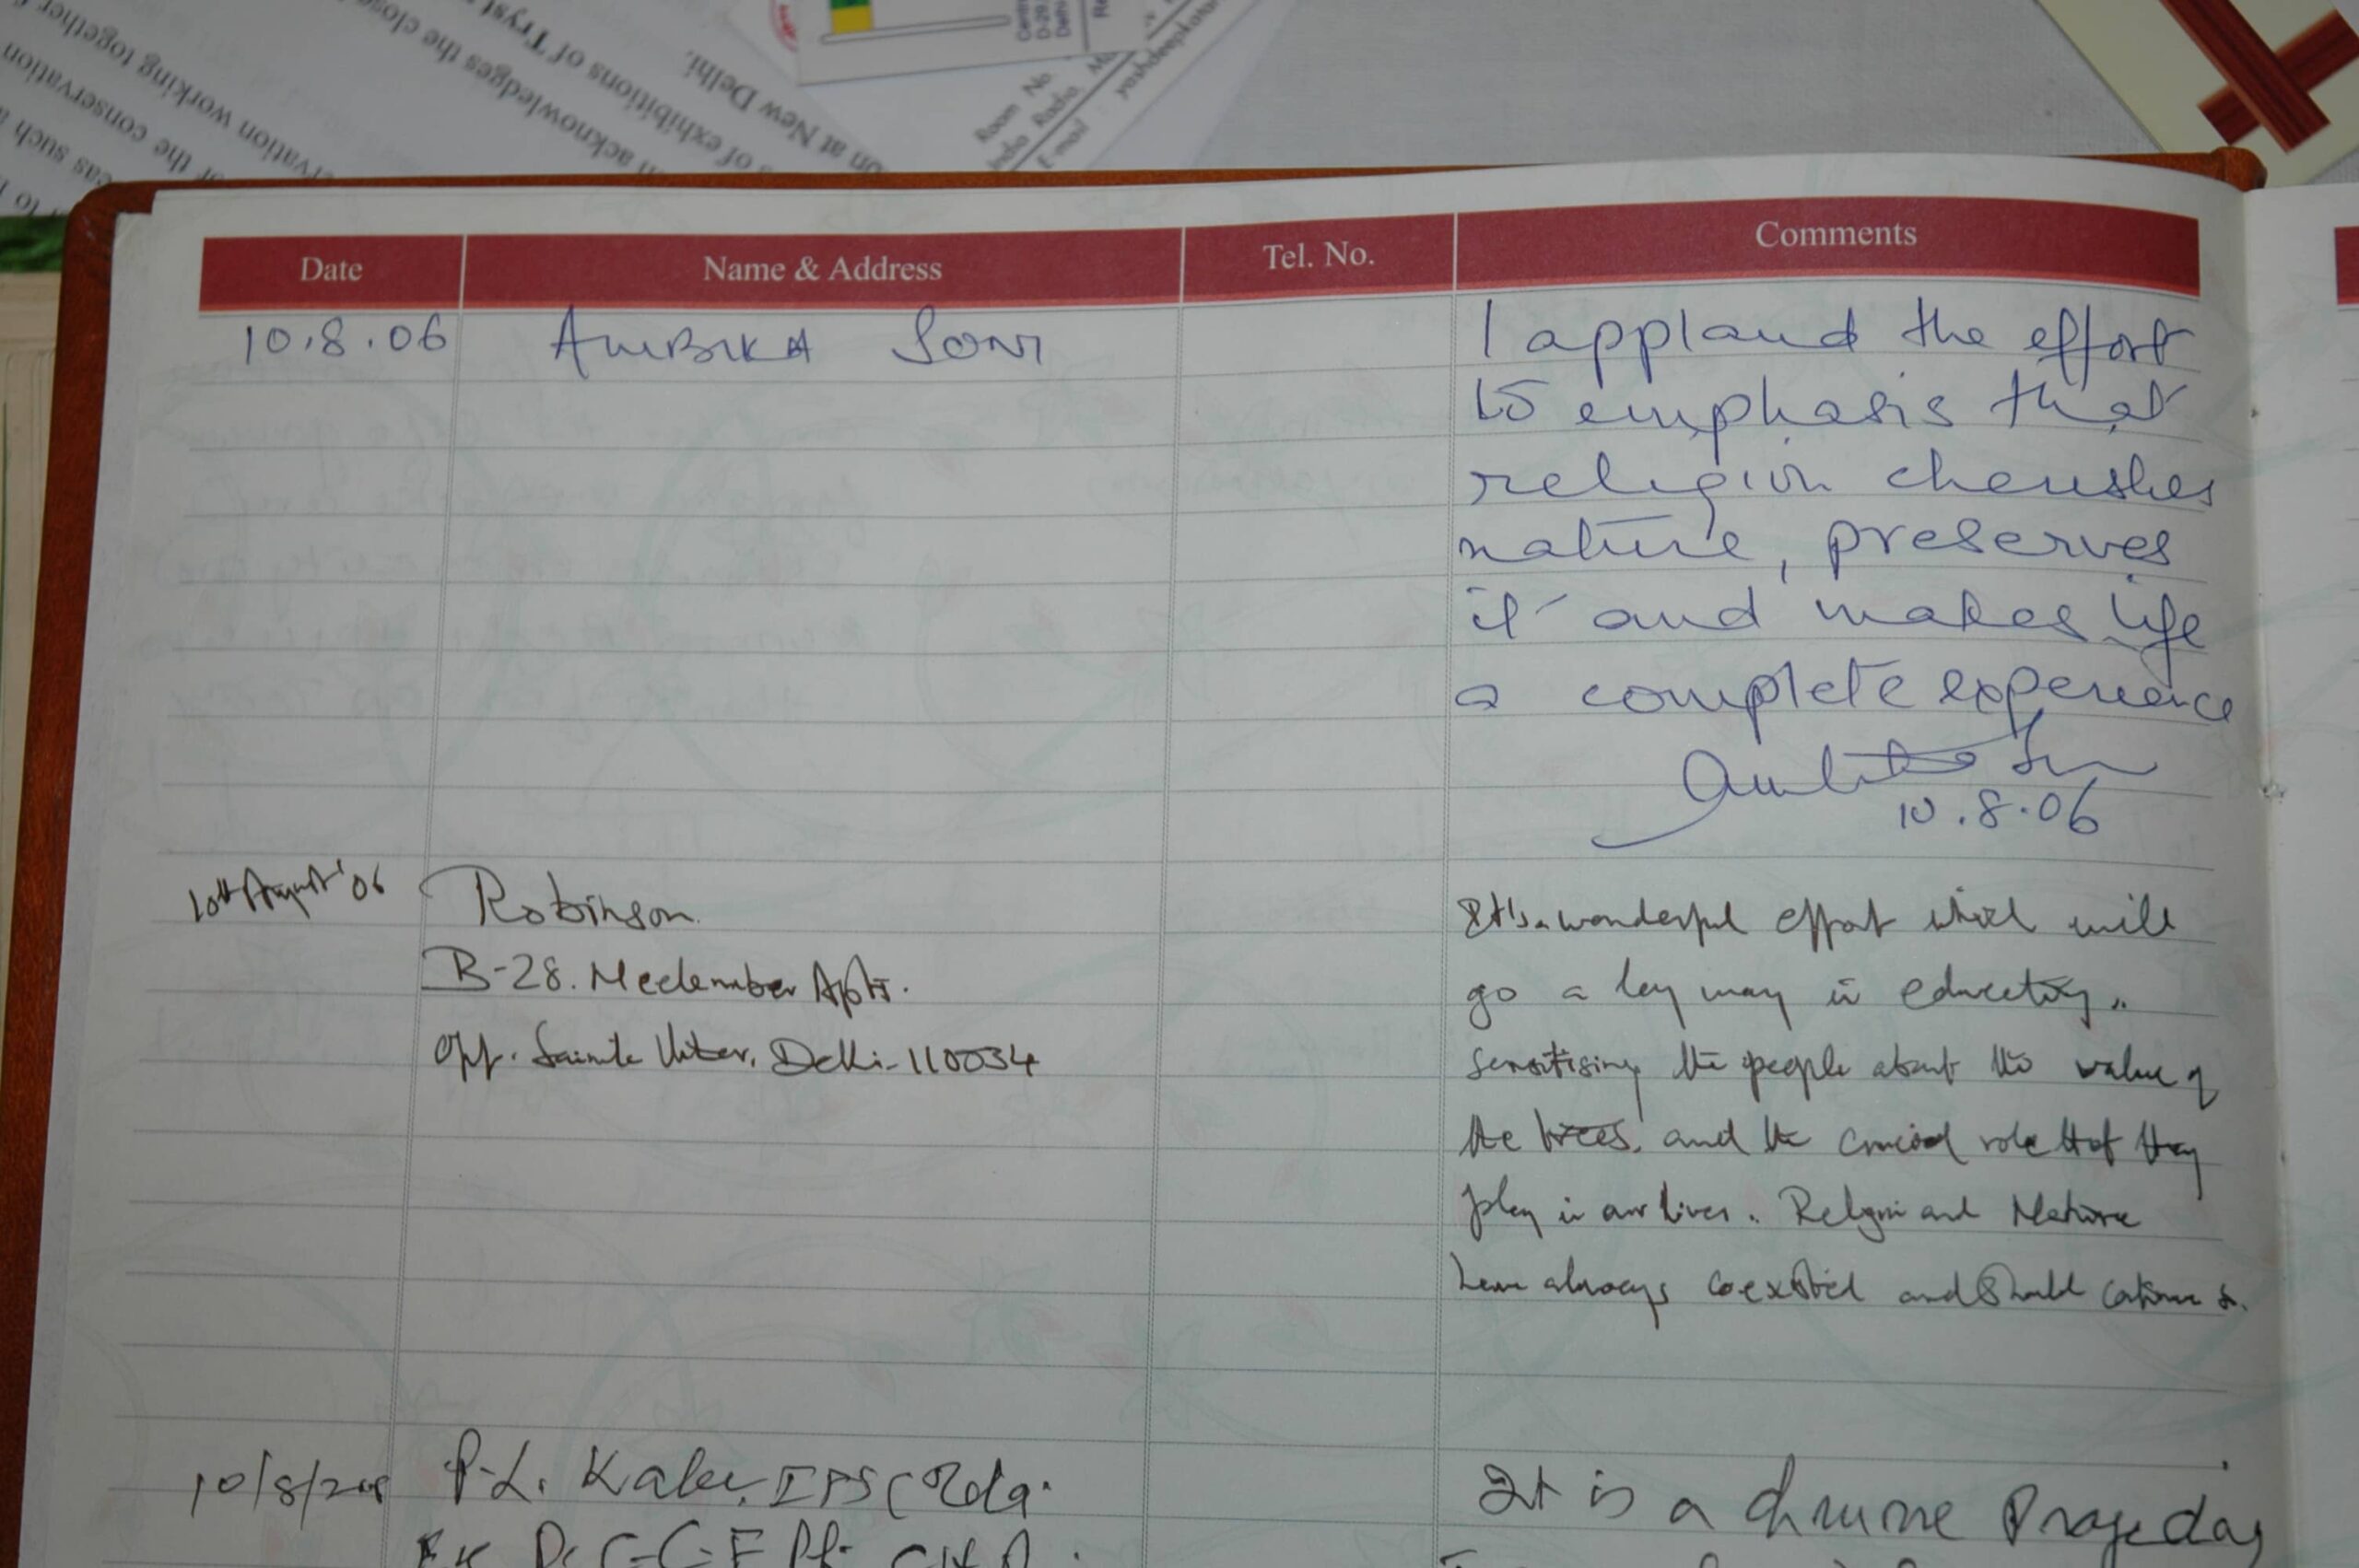 to
eas such a
or the conservation
servation working together
n acknowledges the close
s of exhibitions of Tryst
on at New Delhi.
Room No.
India Radio
E-mail
Date Name & Address Tel. No. Comments
10.8.06 AMBIKA SONI
I applaud the effort
to emphasis that
religion cherishes
nature, preserves
it and makes life
a complete experience
Ambika Soni
10.8.06
10th August '06 Robinson
B-28. Apts.
Opp. Delhi-110034
It's a wonderful effort which will
go a long way in educating,
sensitising the people about the value of
the trees, and the crucial role that they
play in our lives. Religion and Nature
have always coexisted and should continue to.
10/8/ P.L.
It is a divine